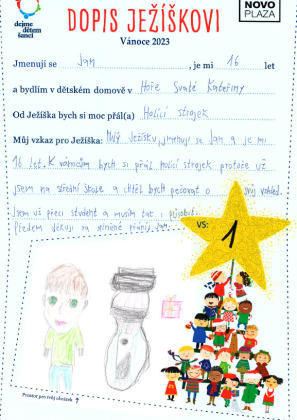 dejme
dětem
šanci
DOPIS JEŽÍŠKOVI
NOVO
PLAZA
Vánoce 2023
Jmenuji se Jan, je mi 16 let
a bydlím v dětském domově v Hoře Svaté Kateřiny
Od Ježíška bych si moc přál(a) Holící strojek
Můj vzkaz pro Ježíška: Milý Ježíšku, jmenuji se Jan a je mi
16 let. K vánocům bych si přál holící strojek protože už
jsem na střední škole a chtěl bych pečovat o svůj vzhled.
Jsem už přeci student a musím tak i působit.
Předem děkuji za splněné přání Jan.
VS: 1
Prostor pro tvůj obrázek